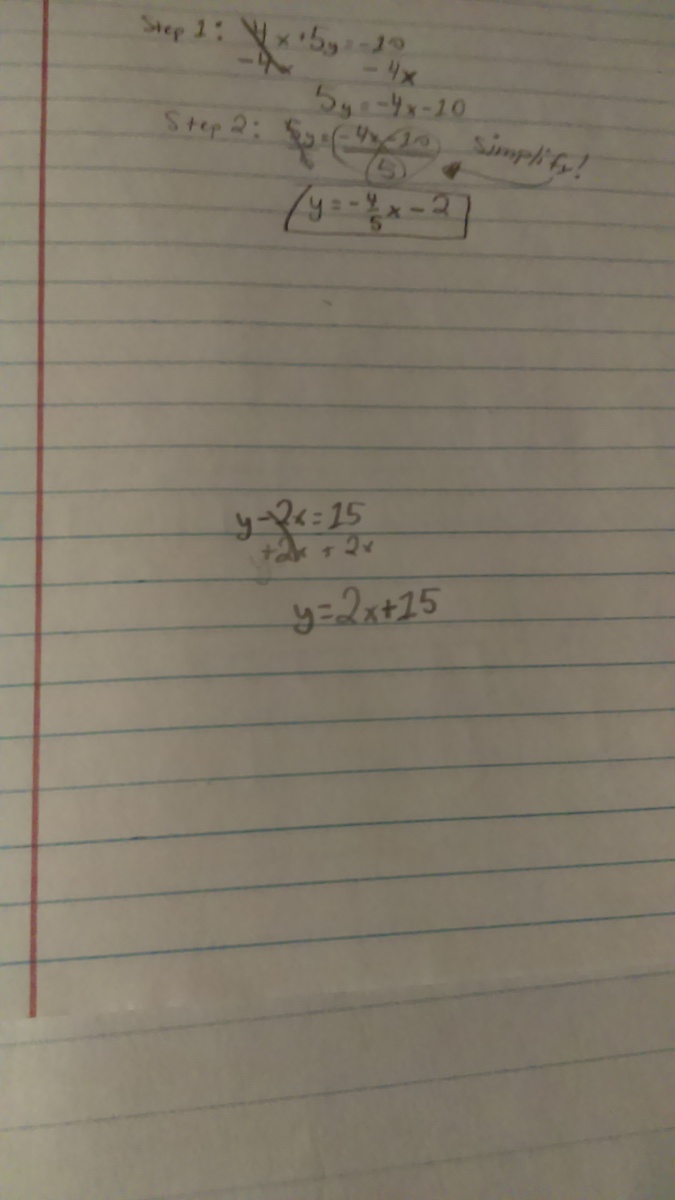 Step 1: 4x+5y=-10
-4x -4x
5y=-4x-10
Step 2: 5y=(-4x-10) simplify!
5
y=-4/5x-2
y-2x=15
+2x +2x
y=2x+15